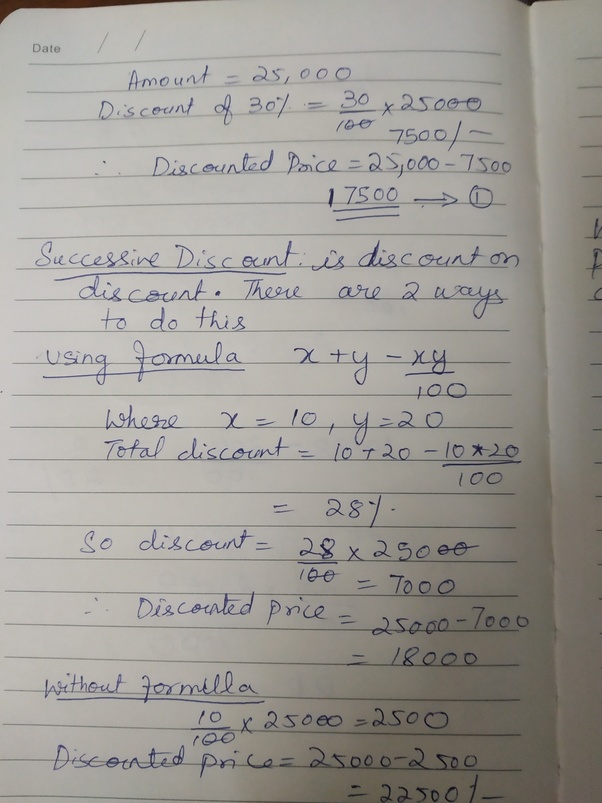 Date / /
Amount = 25,000
Discount of 30% = 30/100 x 25000
7500/-
∴ Discounted Price = 25,000 - 7500
17500 → ①
Successive Discount: is discount on
discount. There are 2 ways
to do this
Using formula x + y - xy/100
Where x = 10, y = 20
Total discount = 10 + 20 - 10*20/100
= 28%.
So discount = 28/100 x 25000
= 7000
∴ Discounted price = 25000 - 7000
= 18000
Without formula
10/100 x 25000 = 2500
Discounted price = 25000 - 2500
= 22500/-